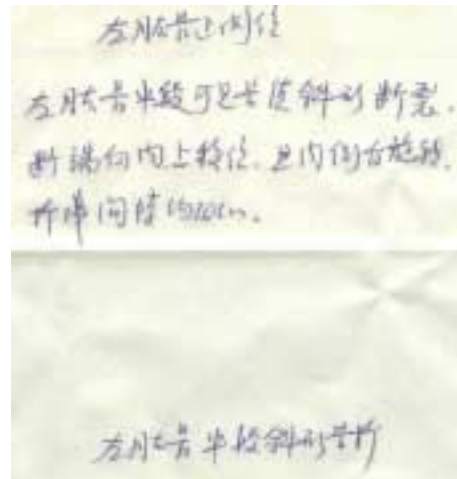 左肱骨正侧位
左肱骨中段可见骨质斜形断裂.
断端向内上移位.且内侧右旋转.
折端间隙约10cm。
左肱骨中段斜形骨折